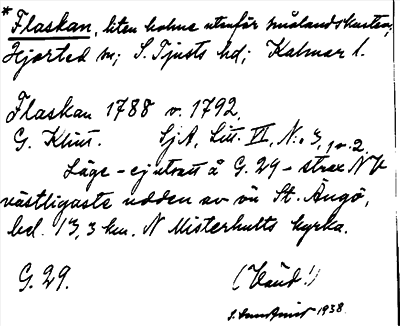 * Flaskan, liten holme utanför smålandskusten;
Hjorted sn; S. Tjusts hd; Kalmar l.
Flaskan 1788 o. 1792.
G. Klint. SjA, Litt. VI, N:o 3, 1 o. 2.
Läge – ej utsatt å G. 29 – strax NV
västligaste udden av ön St. Ängö,
bel. 13,3 km. N Misterhults kyrka.
G. 29. (Känd!)
1938